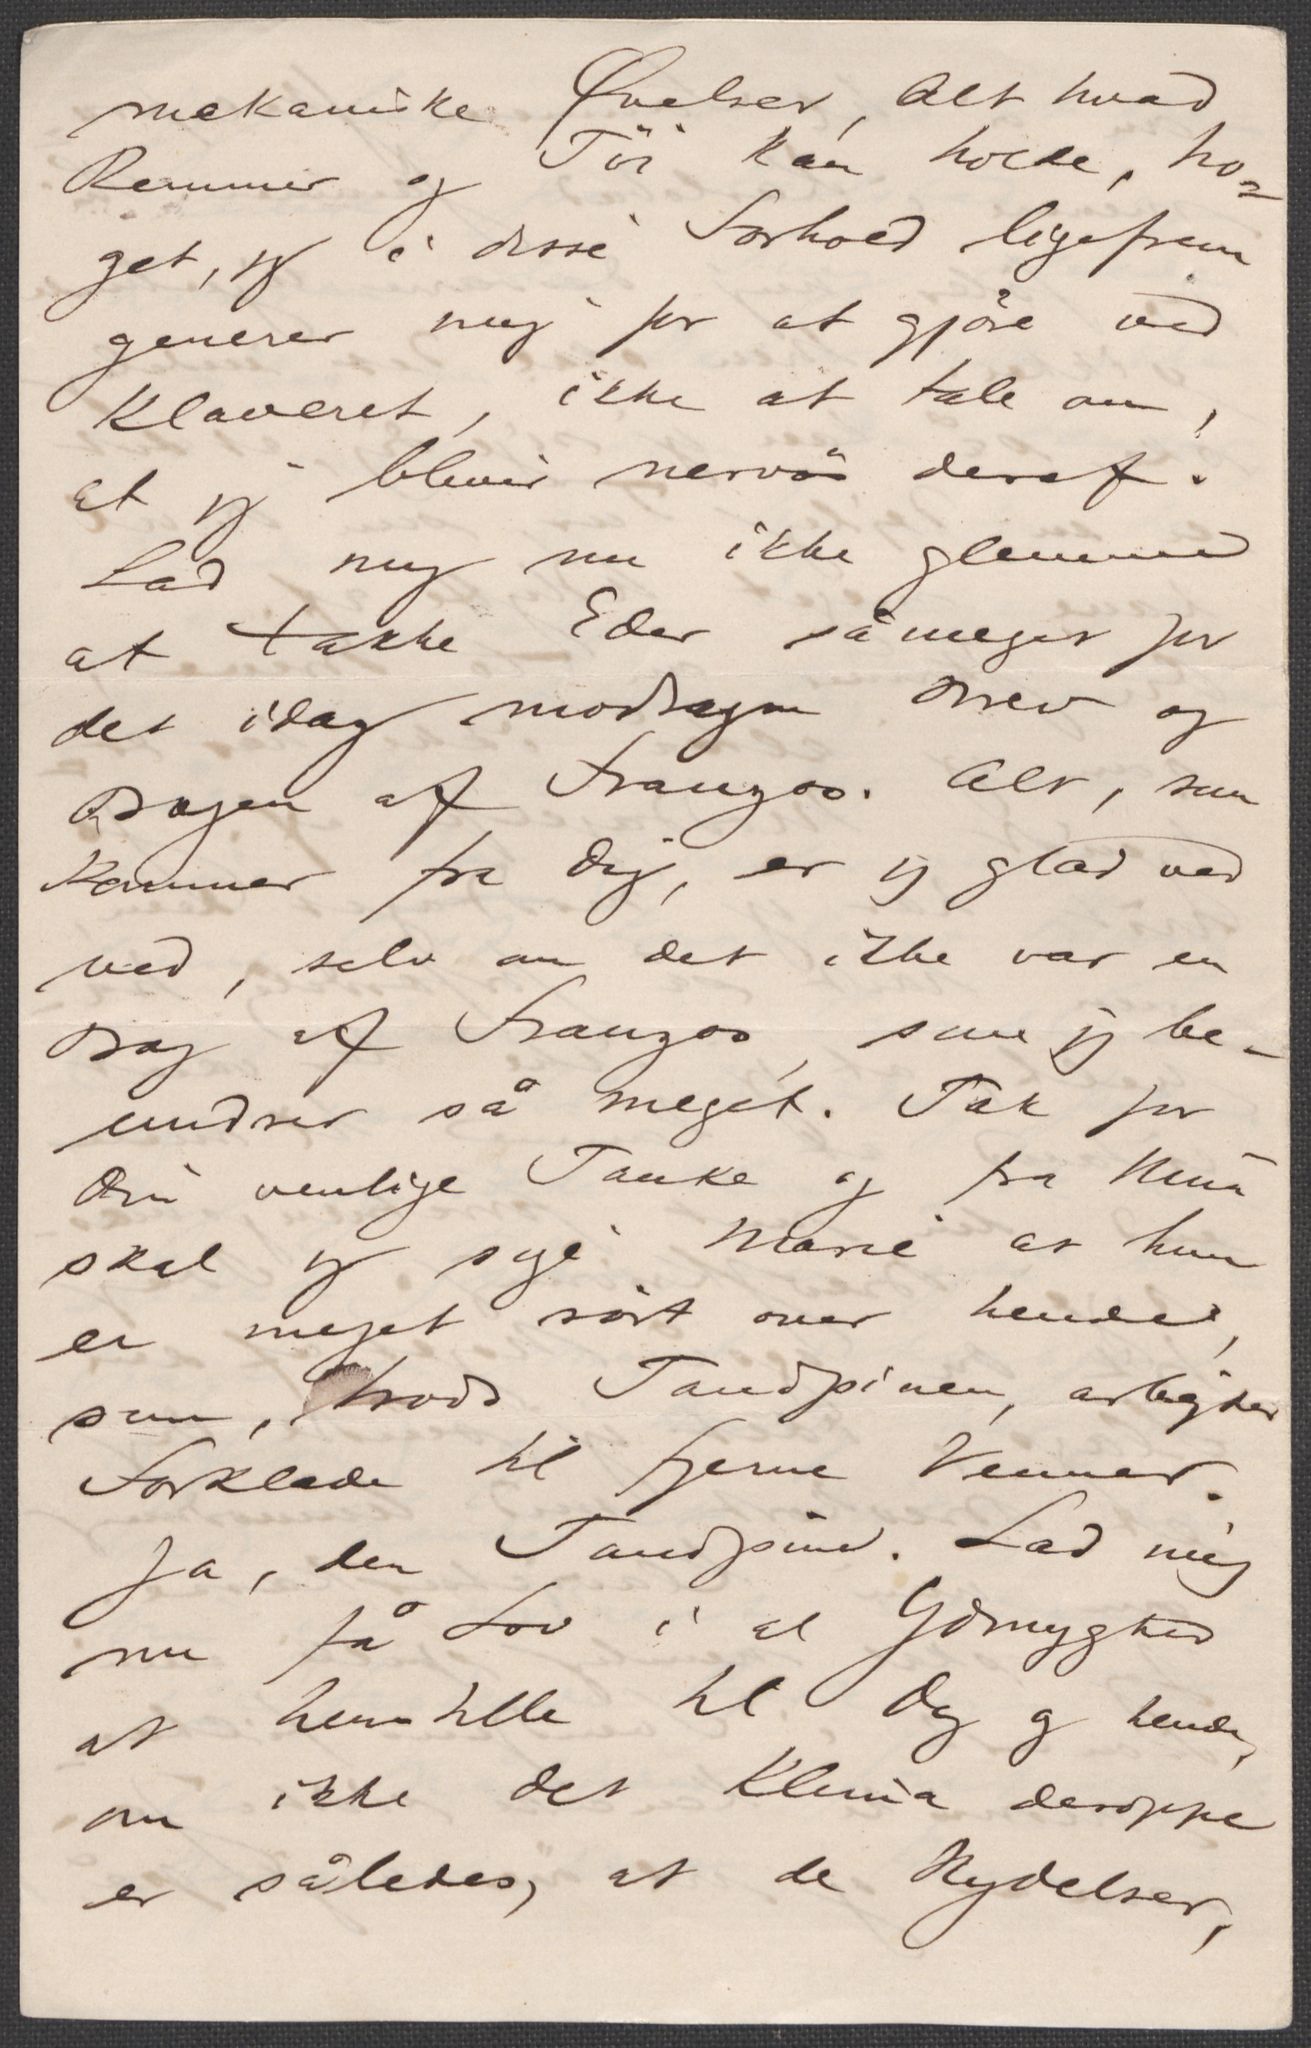 mekaniske Øvelser, Alt hvad
Remmer og Töi kan holde, no=
get, jeg i disse Forhold ligefrem
generer mig for at gjöre ved
Klaveret, ikke at tale om,
at jeg bliver nervös deraf.
Lad mig nu ikke glemme
at takke Eder såmeget for
det idag modtagne Brev og
Bogen af Franzos. Alt, som
kommer fra Dig, er jeg glad ved
ved, selv om det ikke var en
Bog af Franzos, som jeg be-
undrer så meget. Tak for
Din venlige Tanke og fra Nina
skal jeg sige Marie at hun
er meget rört over hende,
som, trods Tandpinen, arbejder
Forklæde til fjerne Venner.
Ja, den Tandpine. Lad mig
nu få Lov i al Ydmyghed
at henstille til Dig og hende,
om ikke det Klima deroppe
er således, at de Nydelser,